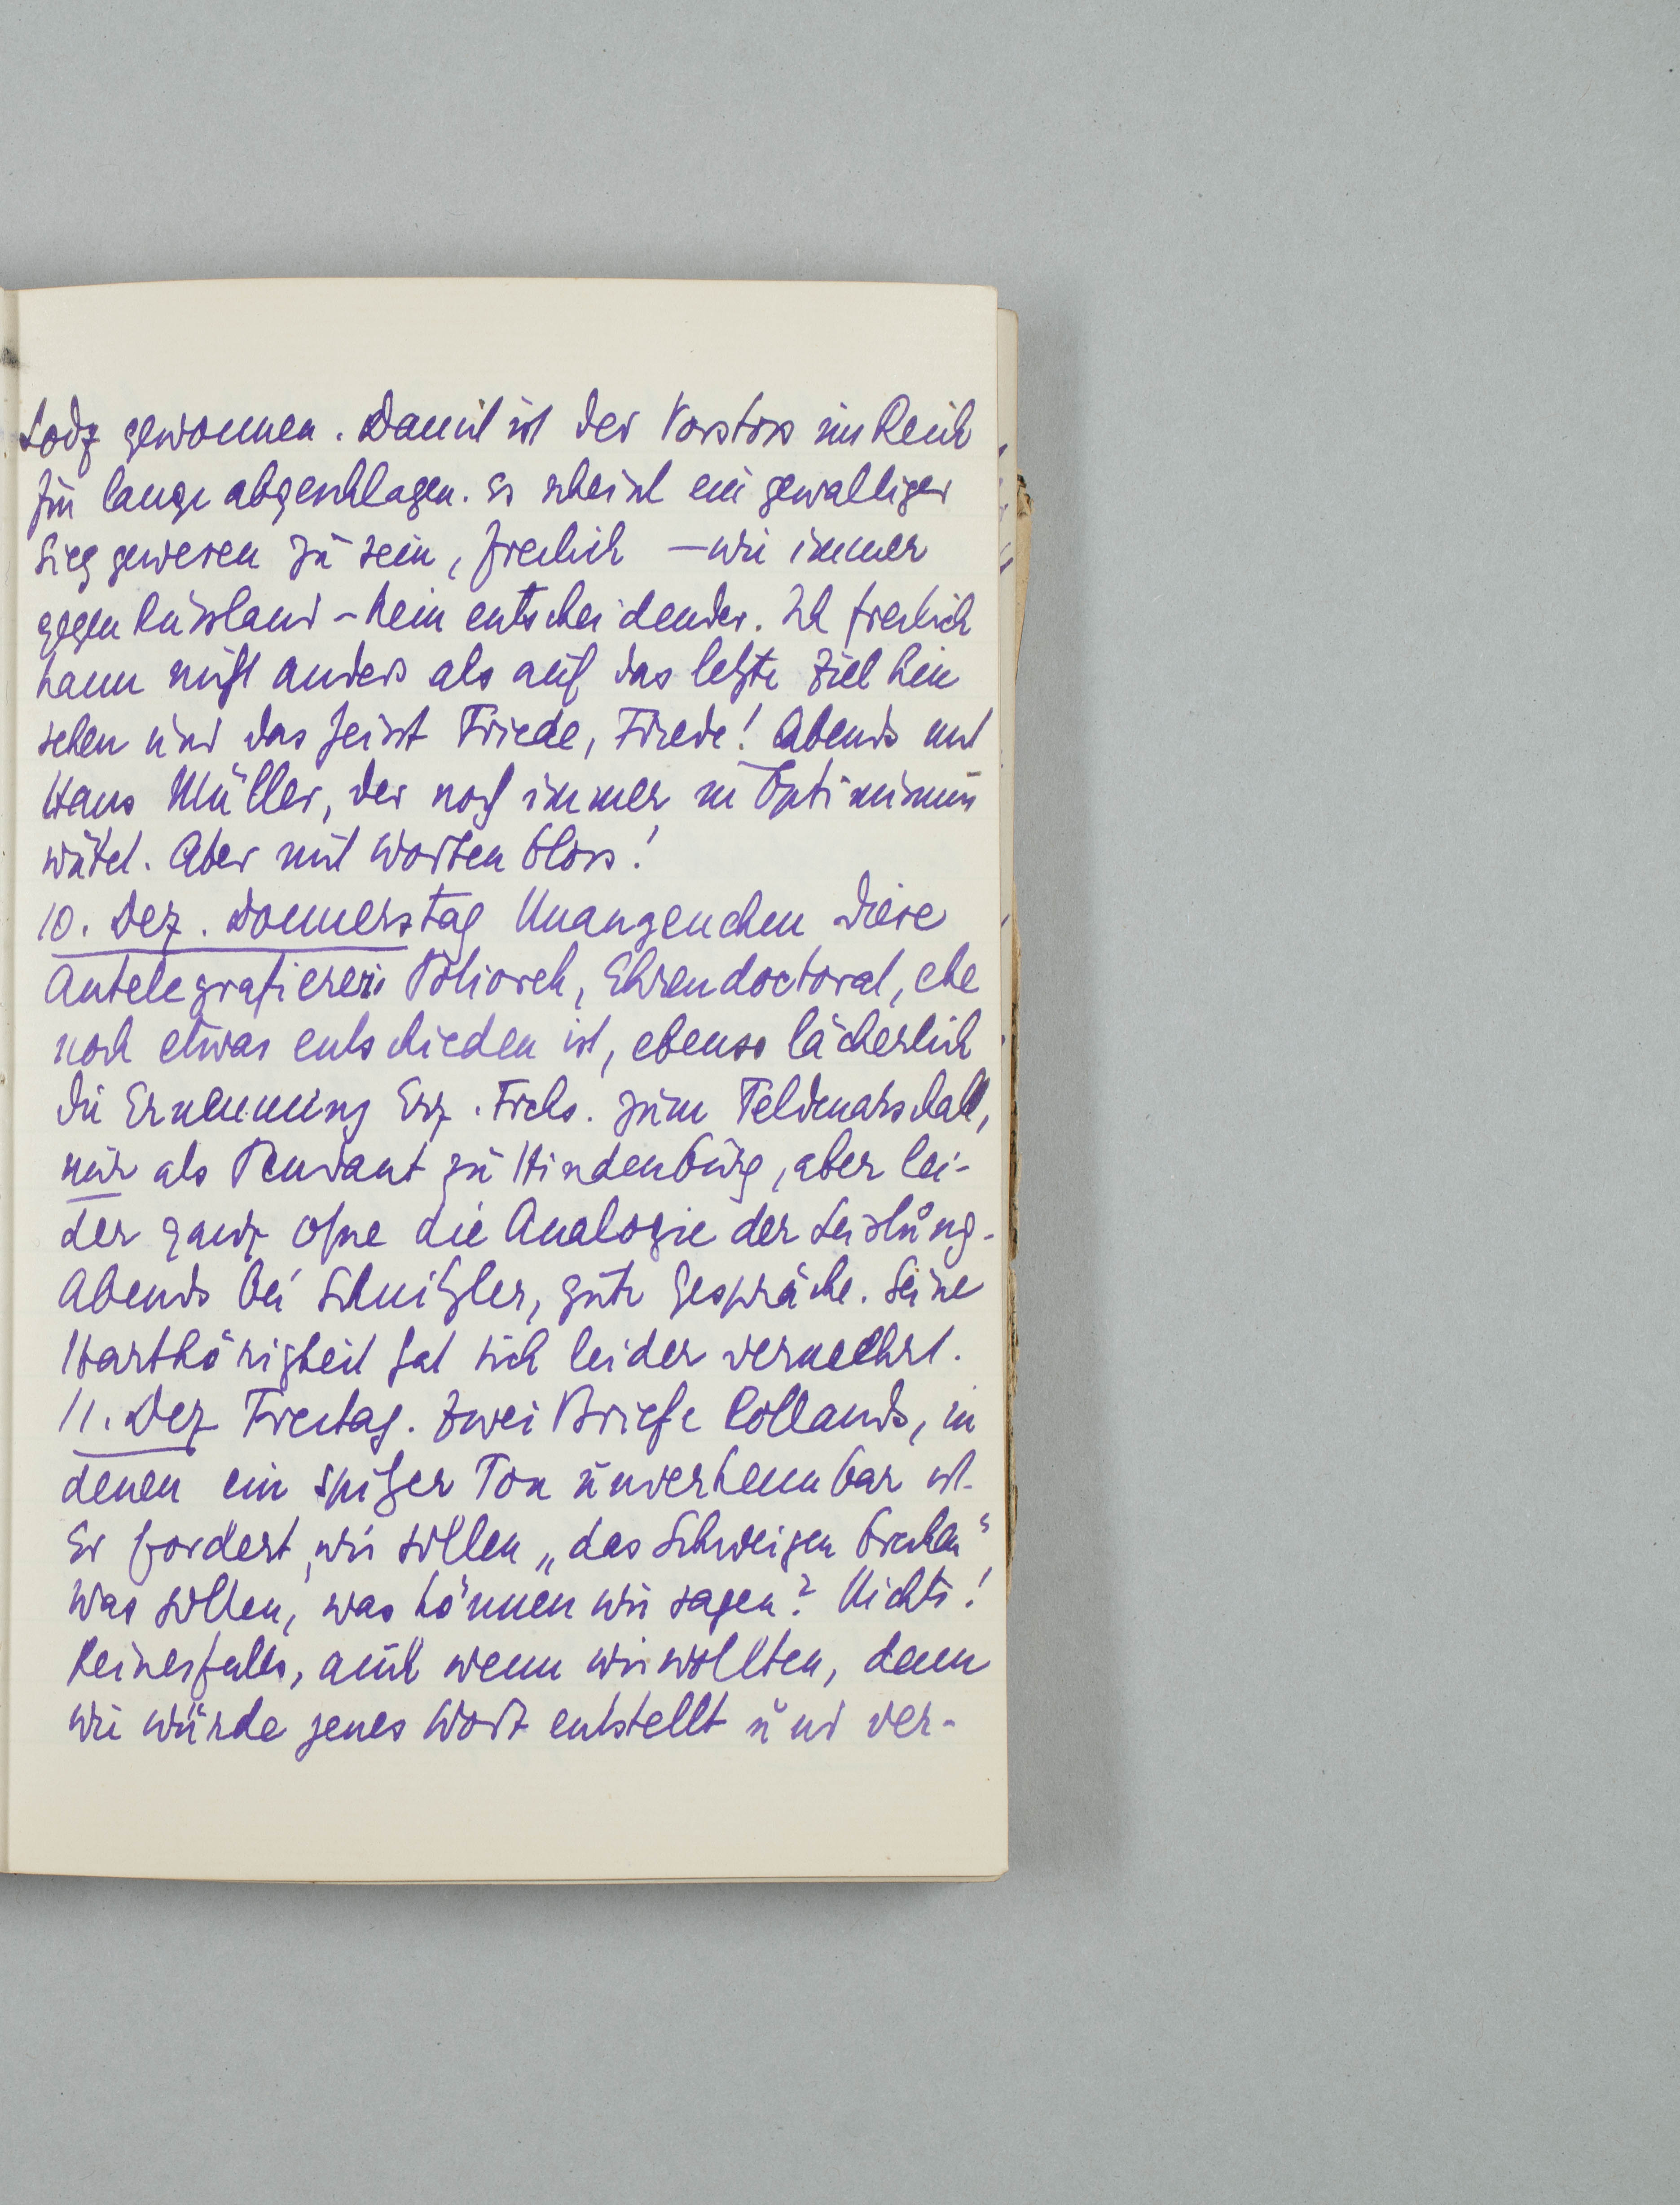 Lodz gewonnen. Damit ist der Vorstoss ins Reich
für lange abgeschlagen. Es scheint ein gewaltiger
Sieg gewesen zu sein, freilich – wie immer
gegen Russland – kein entscheidender. Ich freilich
kann nicht anders als auf das letzte Ziel hin
sehen und das heisst Friede, Friede! Abends mit
Hans Müller, der noch immer in Optimismus
wütet. Aber mit Worten bloss!
10. Dez. Donnerstag Unangenehm diese
Antelegrafiererei Potiorek, Ehrendoctorat, ehe
noch etwas entschieden ist, ebenso lächerlich
die Ernennung Erz. Frdrs. zum Feldmarschall,
nur als Pendant zu Hindenburg, aber lei-
der ganz ohne die Analogie der Leistung.
Abends bei Schnitzler, gute Gespräche. Seine
Harthörigkeit hat sich leider vermehrt.
11. Dez Freitag. Zwei Briefe Rollands, in
denen ein spitzer Ton unverkennbar ist.
Er fordert, wir sollen „das Schweigen brechen“
Was sollen, was können wir sagen? Nichts!
Keinesfalls, auch wenn wir wollten, denn
wie würde jenes Wort entstellt und ver-